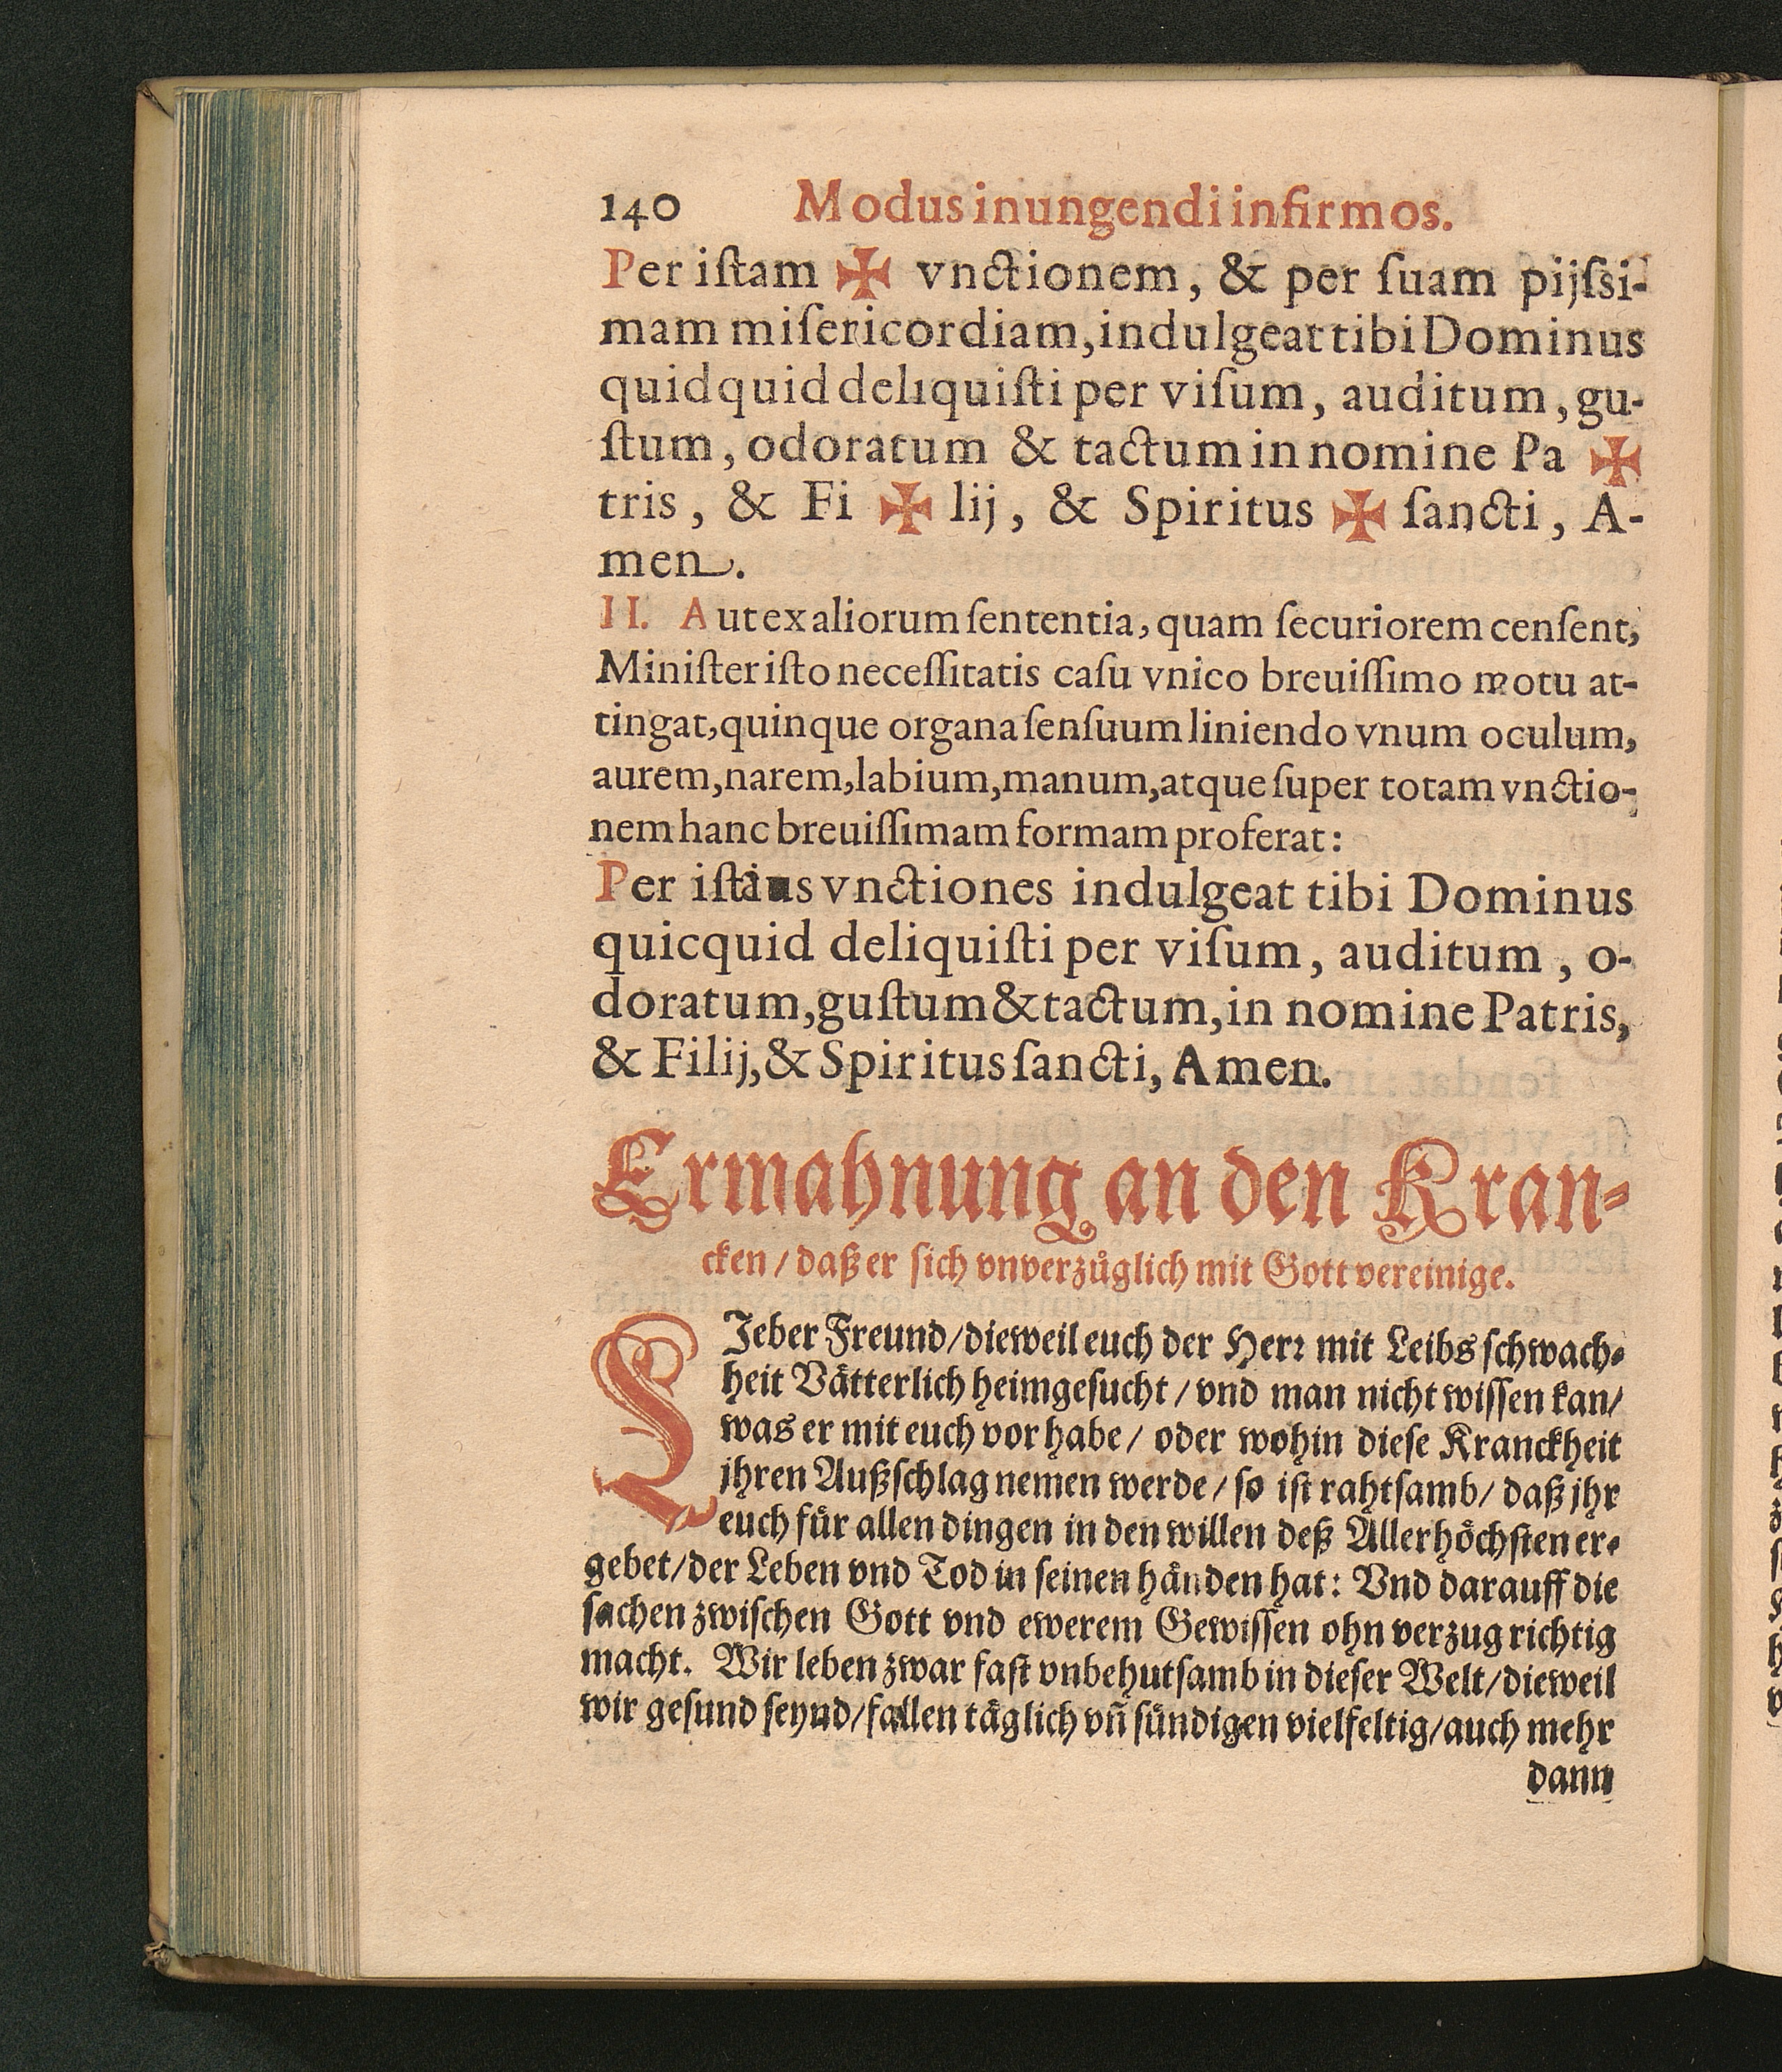 140 Modus inungendi infirmos.
Per iſtam ✠ vnctionem, & per ſuam pijſsi-
mam miſericordiam, indulgeat tibi Dominus
quidquid deliquiſti per viſum, auditum, gu-
ſtum, odoratum & tactum in nomine Pa ✠
tris, & Fi ✠ lij, & Spiritus ✠ ſancti, A-
men.
II. Aut ex aliorum ſententia, quam ſecuriorem cenſent,
Miniſter iſto neceſſitatis caſu vnico breuiſſimo motu at-
tingat, quinque organa ſenſuum liniendo vnum oculum,
aurem, narem, labium, manum, atque ſuper totam vnctio-
nem hanc breuiſſimam formam proferat:
Per vnctiones indulgeat tibi Dominus
quicquid deliquiſti per viſum, auditum, o-
doratum, guſtum & tactum, in nomine Patris,
& Filij, & Spiritus ſancti, Amen.
Ermahnung an den Kran-
cken / daß er ſich vnverzuͤglich mit Gott vereinige.
LIeber Freund / dieweil euch der Herꝛ mit Leibs ſchwach-
heit Vaͤtterlich heimgeſucht / vnd man nicht wiſſen kan /
was er mit euch vor habe / oder wohin dieſe Kranckheit
jhren Außſchlag nemen werde / ſo iſt rahtſamb / daß jhr
euch fuͤr allen dingen in den willen deß Allerhoͤchſten er-
gebet / der Leben vnd Tod in ſeinen haͤnden hat: Vnd darauff die
ſachen zwiſchen Gott vnd ewerem Gewiſſen ohn verzug richtig
macht. Wir leben zwar faſt vnbehutſamb in dieſer Welt / dieweil
wir geſund ſeynd / fallen taͤglich vñ ſuͤndigen vielfeltig / auch mehr
dann